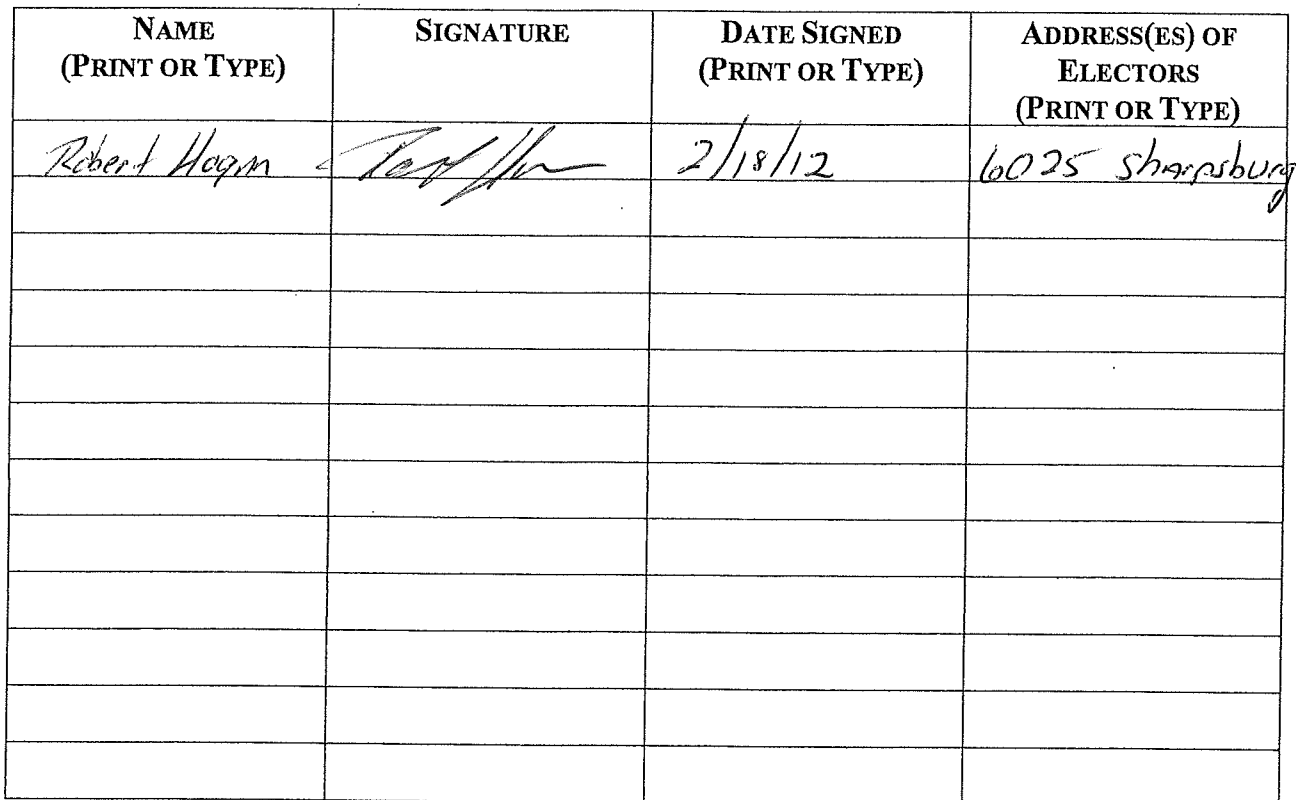 NAME
(PRINT OR TYPE)
SIGNATURE
DATE SIGNED
(PRINT OR TYPE)
ADDRESS(ES) OF
ELECTORS
(PRINT OR TYPE)
Robert Hogan 2/18/12 6025 Sharpsburg